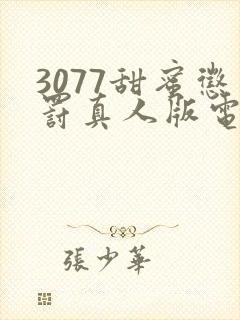 3077甜蜜懲
罸真人版電
張少華